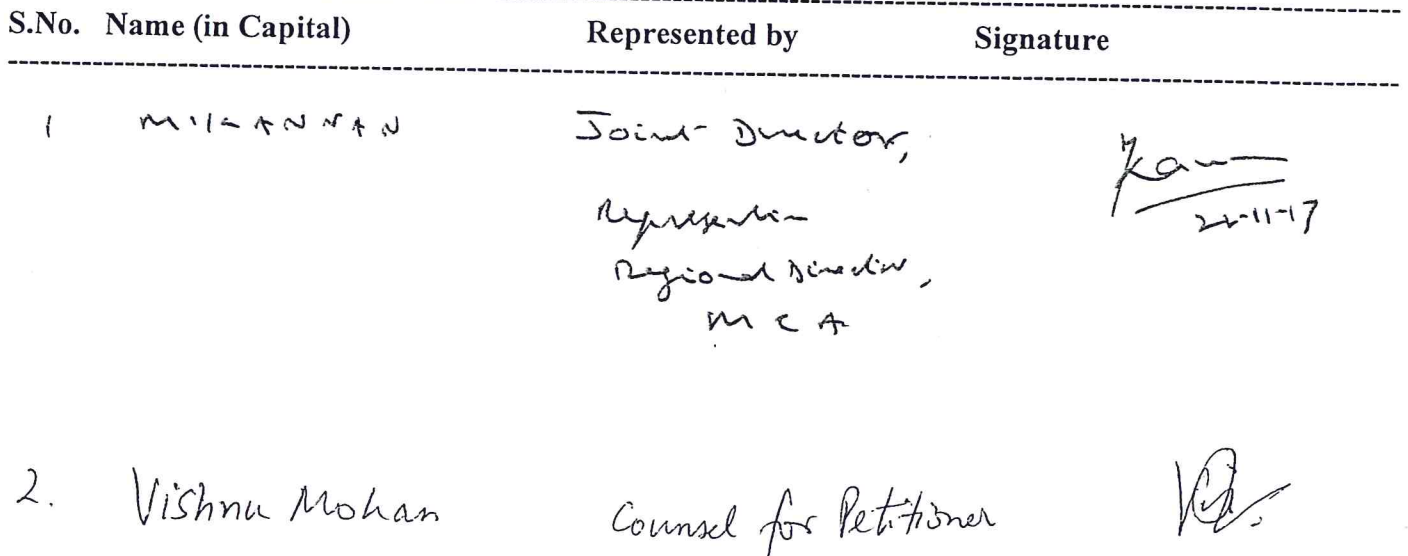 S.No. Name (in Capital) Represented by Signature
1 M. KANNAN Joint Director,
Representing
Regional Director,
MCA
2. Vishnu Mohan Counsel for Petitioner